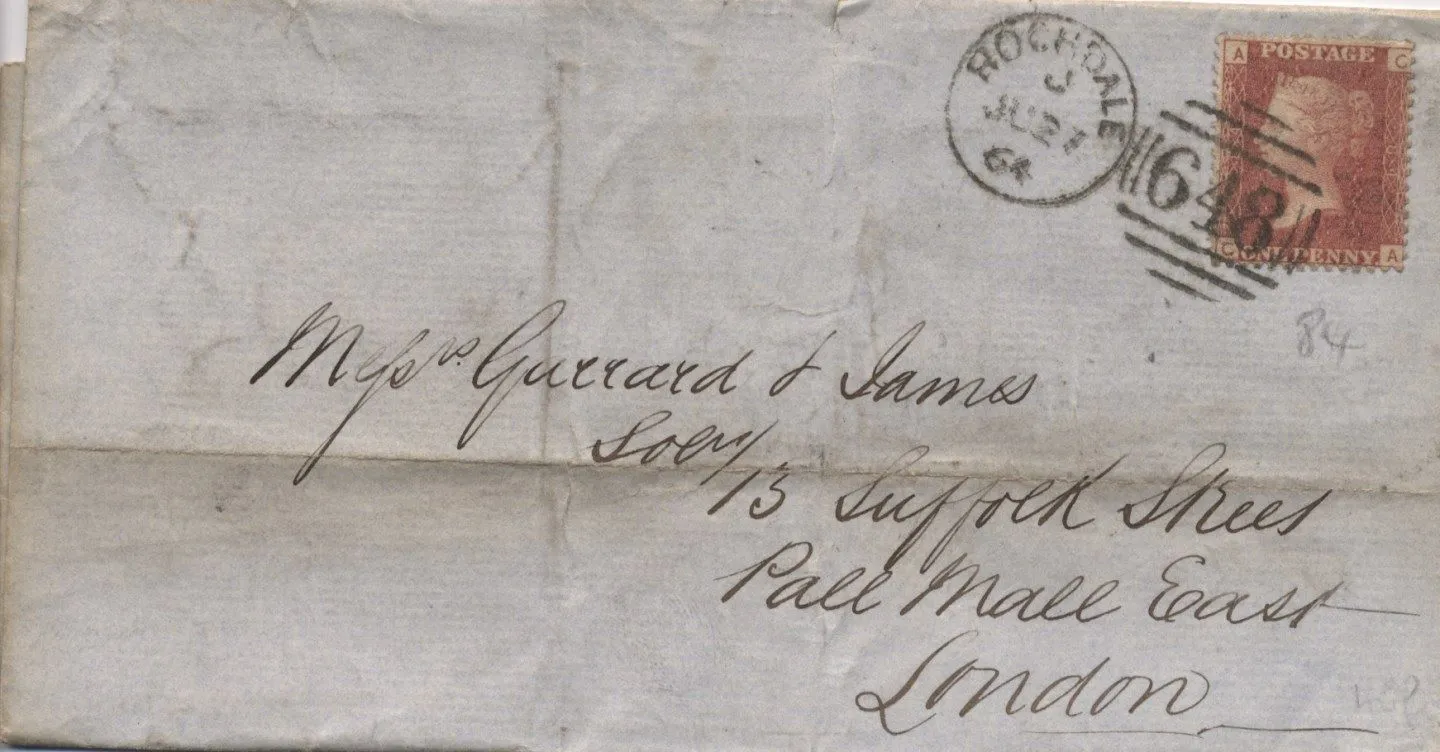 ROCHDALE
J
JU 27
64
648
A POSTAGE C
C ONE PENNY A
84
Messrs. Gurrard & James
Solrs/
13 Suffolk Street
Pall Mall East
London